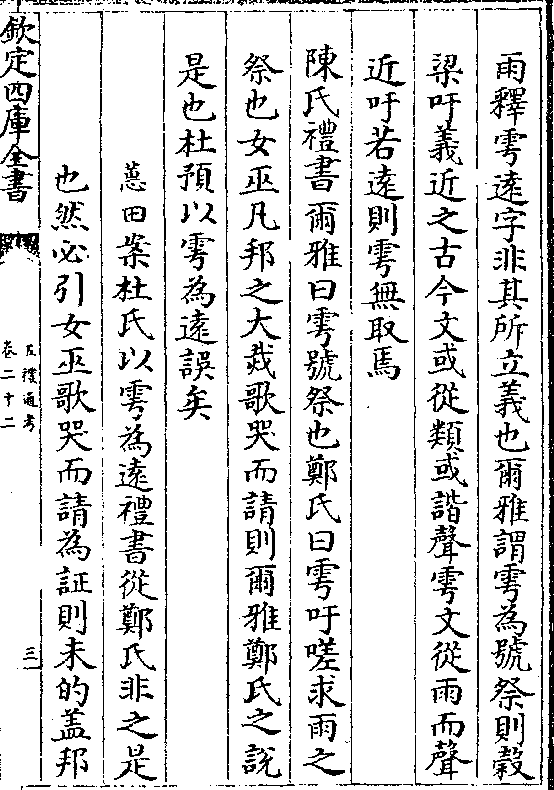 雨釋雩遠字非其所立義也爾雅謂雩為號祭則穀
梁吁義近之古今文或從類或諧聲雩文從雨而聲
近吁若遠則雩無取焉
陳氏禮書爾雅曰雩號祭也鄭氏曰雩吁嗟求雨之
祭也女巫凡邦之大烖歌哭而請則爾雅鄭氏之説
是也杜預以雩為遠誤矣
蕙田案杜氏以雩為遠禮書從鄭氏非之是
也然必引女巫歌哭而請為証則未的盖邦
欽定四庫全書
五禮通考
卷二十二
三